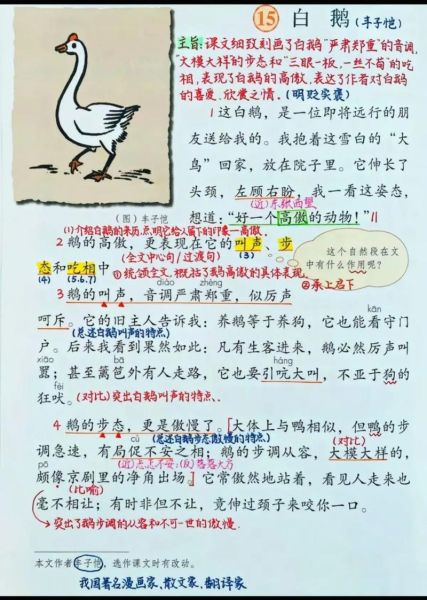 15 白 鹅 (丰子恺)
主旨:课文细致刻画了白鹅"严肃郑重"的音调,
"大模大样的步态和"三眼一板,一丝不苟"的吃
相,表现了白鹅的高傲,表达了作者对白鹅
的喜爱、欣赏之情。(明贬实褒)
1这白鹅,是一位即将远行的朋
友送给我的。我抱着这雪白的"大
鸟"回家,放在院子里。它伸长了
头颈,左顾右盼,我一看这姿态,
(近)东张西望
想道:"好一个高傲的动物!"
(图)丰子恺
(1)介绍白鹅的来历,点明它给人留下的印象—高傲.
2 鹅的高傲,更表现在它的叫声、步
(全文中心句/过渡句)
(3)
态和吃相中
(4) (5.6.7)
①统领全文,概括了鹅高傲的具体表现
这个自然段在文
中有什么作用呢?
②承上启下
diào zhèng
3鹅的叫声,音调严肃郑重,似厉声
呵斥。它的旧主人告诉我:养鹅等于养狗,它也能看守门
(总述白鹅叫声的特点)
户。后来我看到果然如此:凡有生客进来,鹅必然厉声叫
xiāo bā háng
嚣;甚至篱笆外有人走路,它也要引吭大叫,不亚于狗的
fèi
狂吠。(对比)突出白鹅叫声的特点、
4 鹅的步态,更是傲慢了。[大体上与鸭相似,但鸭的步
(总述白鹅步态傲慢的特点)
cù
(对比)
调急速,有局促不安之相;鹅的步调从容,大模大样的,
(近)忐忑不安:(反)落落大方
pō
颇像京剧里的净角出场]它常傲然地站着,看见人走来也
(比喻)
毫不相让;有时非但不让,竟伸过颈子来咬你一口。
突出了鹅步调的从容和不可一世的傲慢.
本文作者丰子恺,选作课文时有改动。
我国著名漫画家、散文家、翻译家